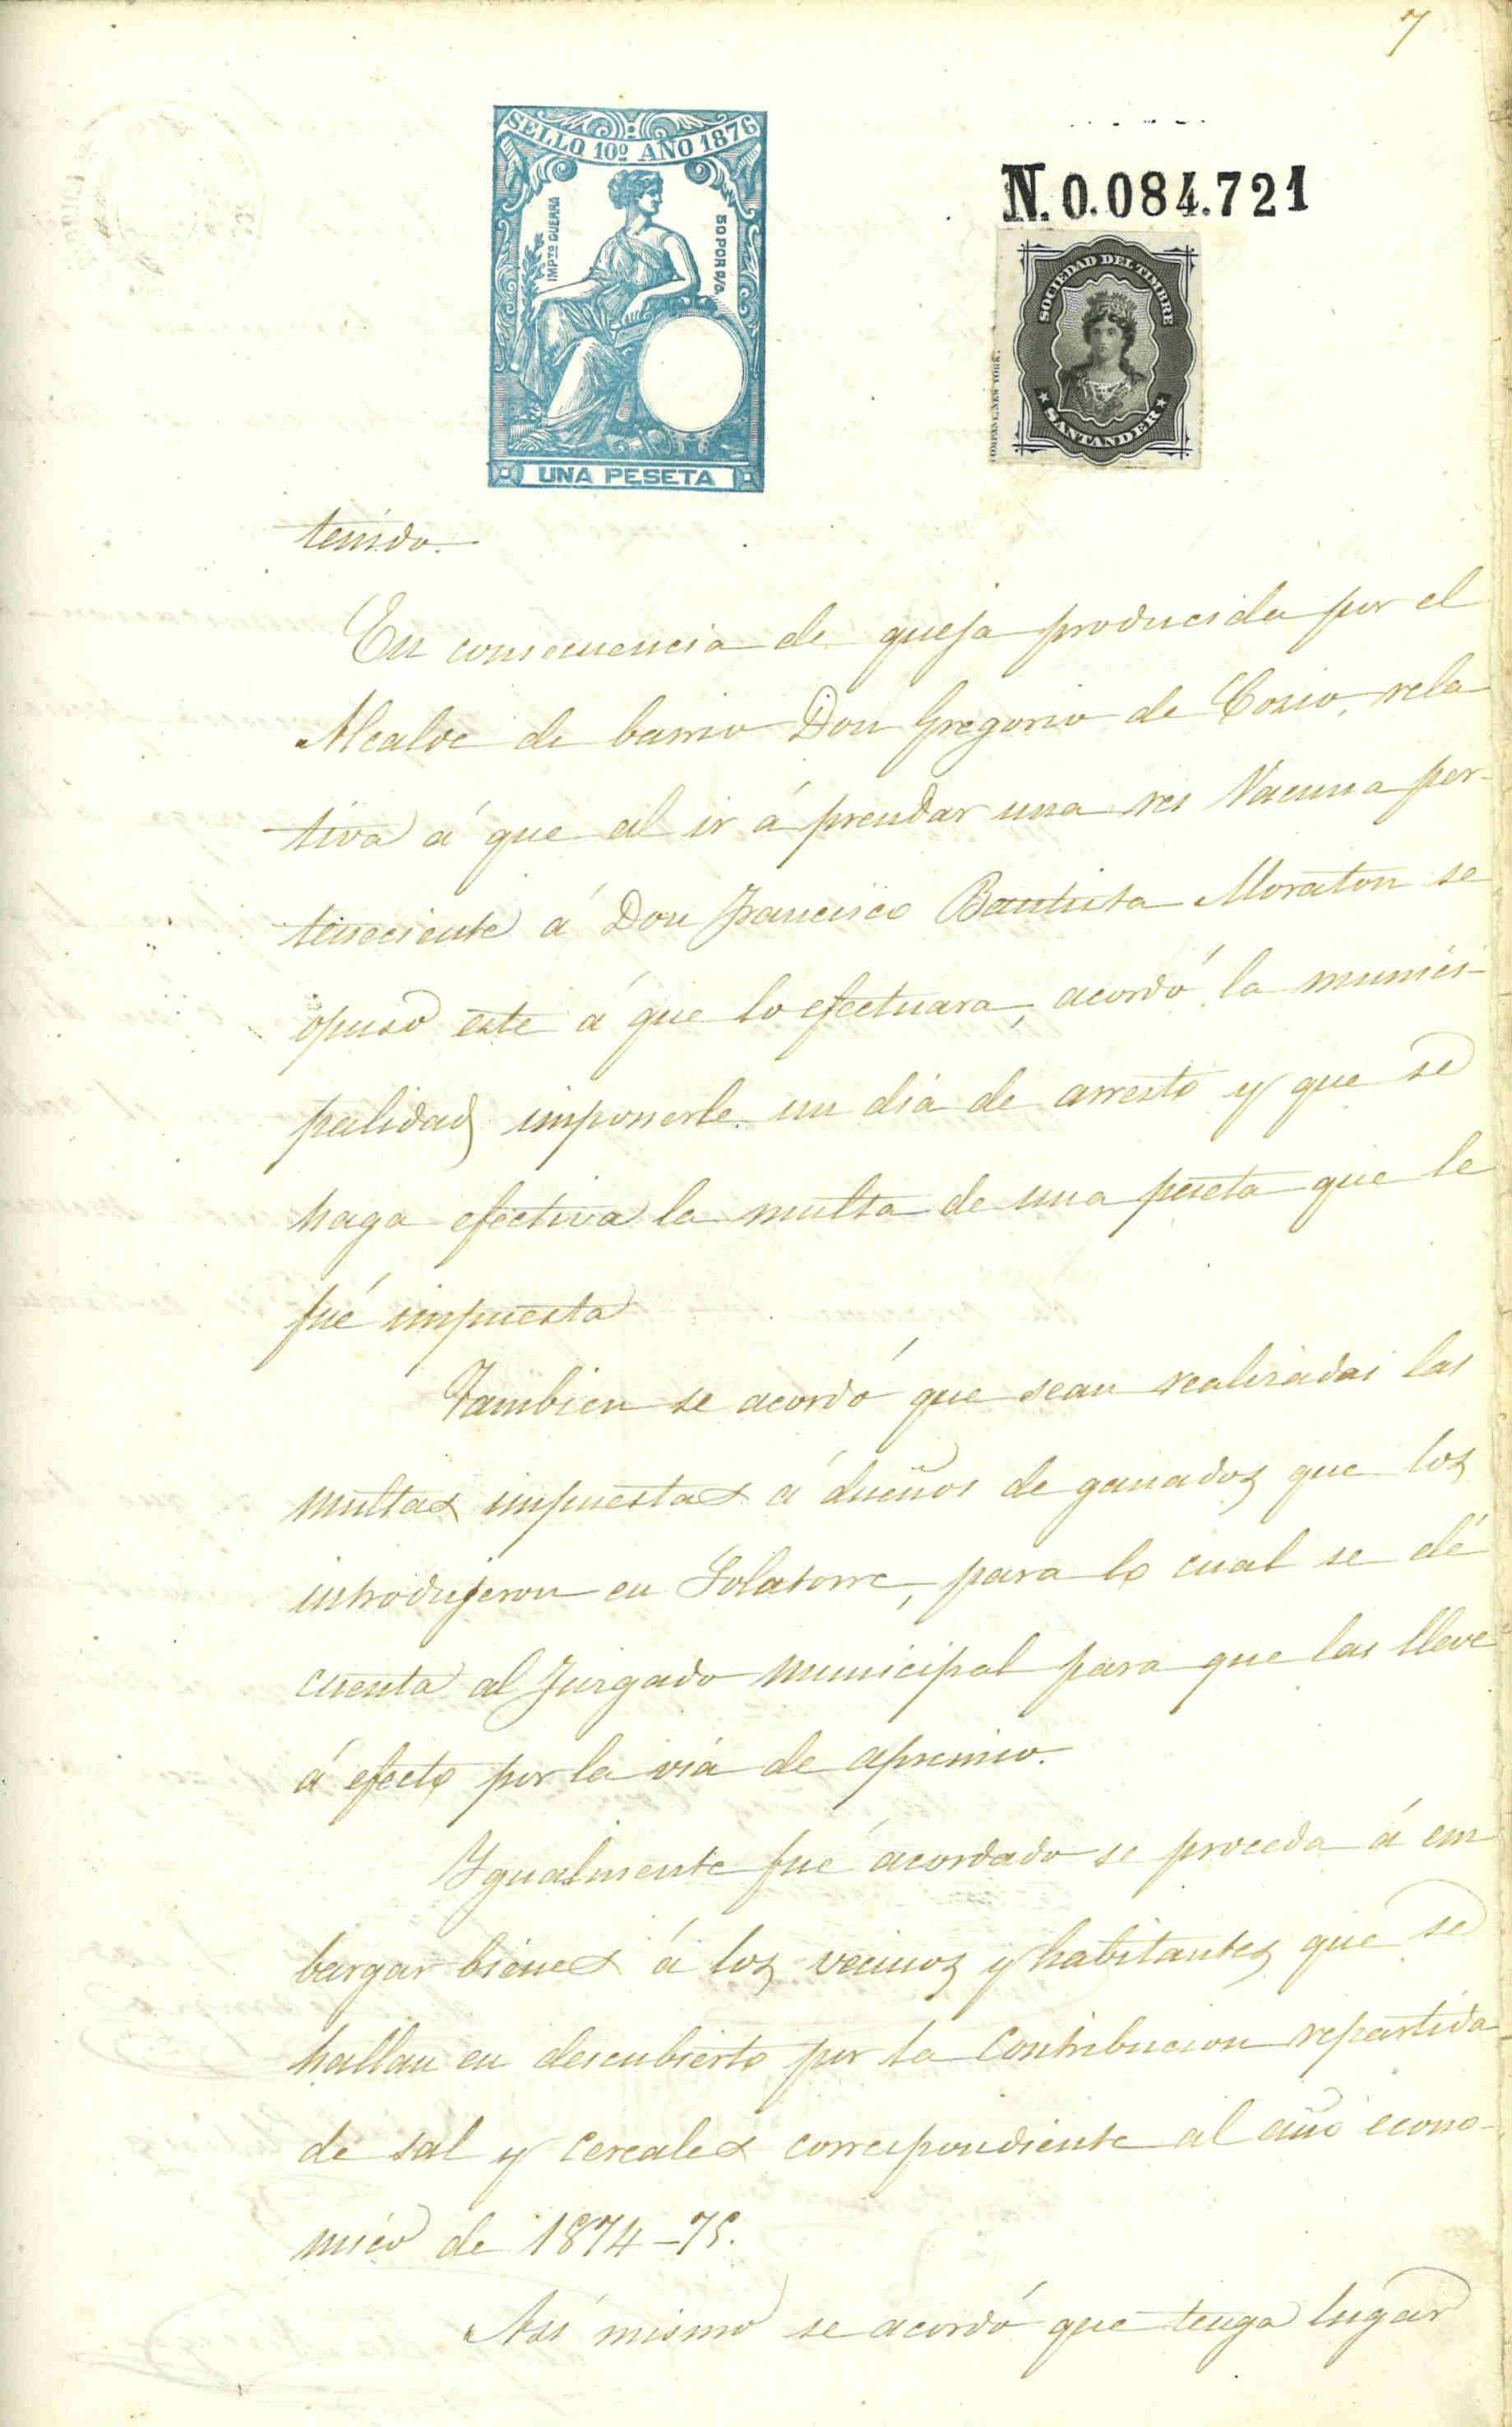 7
SELLO 10º AÑO 1876
IMPTO GUERRA
50 POR 0/0.
UNA PESETA
N. 0.084.721
SOCIEDAD DEL TIMBRE
COMPANY, NEW YORK.
SANTANDER
tenido.
En consecuencia de queja producida por el
Alcalde de barrio Don Gregorio de Cosio, rela
tiva á que al ir á prendar una res Vacuna per-
teneciente á Don Francisco Bautista Moraton se
opuso este á que lo efectuara, acordó la munici-
palidad imponerle un dia de arresto y que se
haga efectiva la multa de una peseta que le
fué impuesta
Tambien se acordó que sean realizadas las
multas impuestas á dueños de ganados que los
introdujeron en Solatorre, para lo cual se dé
cuenta al Juzgado municipal para que las lleve
á efecto por la via de apremio.
Igualmente fué acordado se proceda á em
bargar bienes á los vecinos y habitantes que se
hallan en descubierto por la Contribucion repartida
de sal y cereales correspondiente al año econo-
mico de 1874-75.
Asi mismo se acordó que tenga lugar